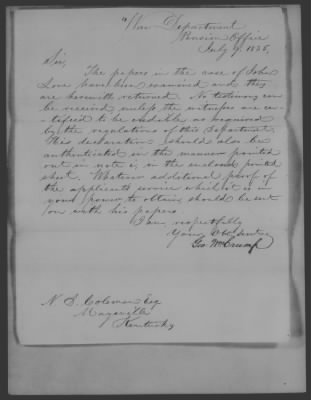 "War Department
Pension Office
July 9. 1835,
Sir,
The papers in the case of John
Love have been examined and they
are herewith returned. No testimony can
be received unless the witnesses are ce-
rtified to be credible as required
by the regulations of this Department.
This declaration should also be
authenticated in the manner pointed
out in note in the enclosed printed
sheet. Whatever additional proof of
the applicants service which it is in
your power to obtain, should be sent
on with his papers
I am, respectfully
Your Obt. servt.
Geo. W. Crump
N. D. Coleman Esq
Maysville
Kentucky